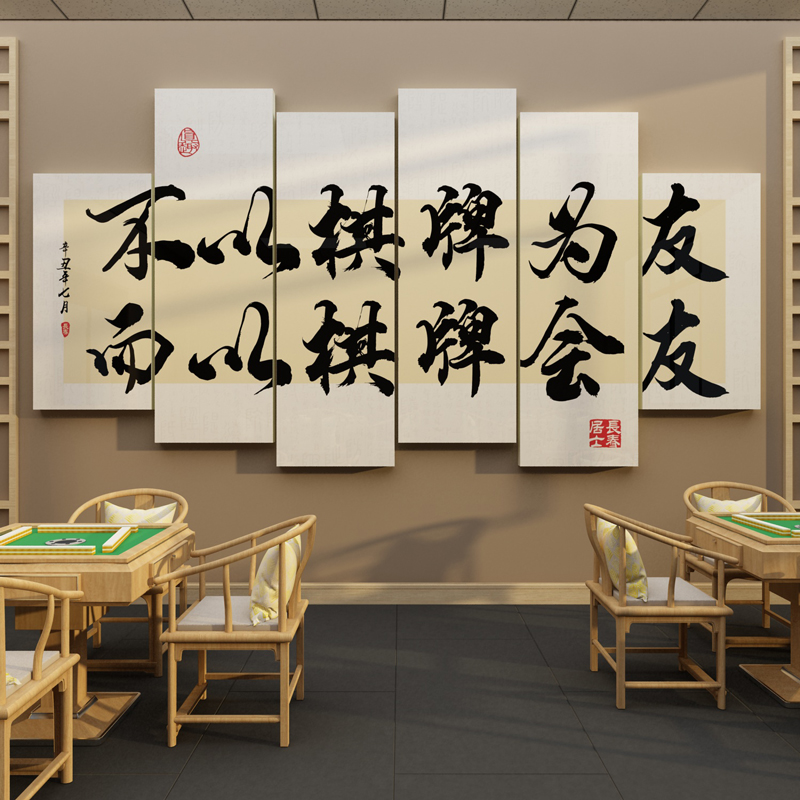 不以棋牌为友
而以棋牌会友
辛丑年七月
長春居士